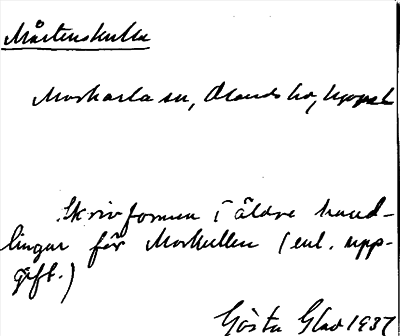 Mårtenskulla
Morkarla sn, Olands hd, Uppsala
Skrivformen i äldre hand-
lingar för Morkullen (enl. upp-
gift.)
Gösta Glad 1937